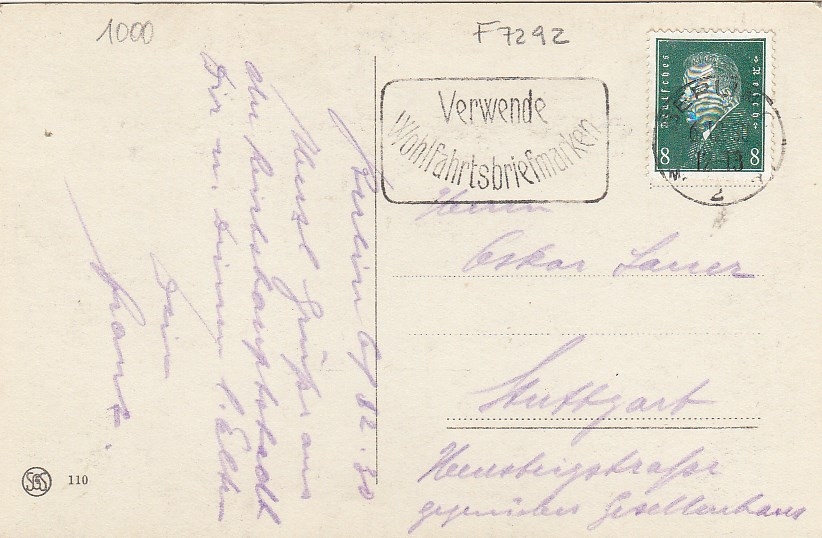 1000
F7292
Deutsches Reich
8 8
BERLIN
12-13
2
Verwende
Wohlfahrtsbriefmarken
Berlin 6/12.30
Herzl. Grüße aus
der Reichshauptstadt
Dir u. Deinen l. Eltern
Dein
Franz.
Herrn
Oskar
Stuttgart
Heusteigstraße
gegenüber Gesellenhaus
SGS 110